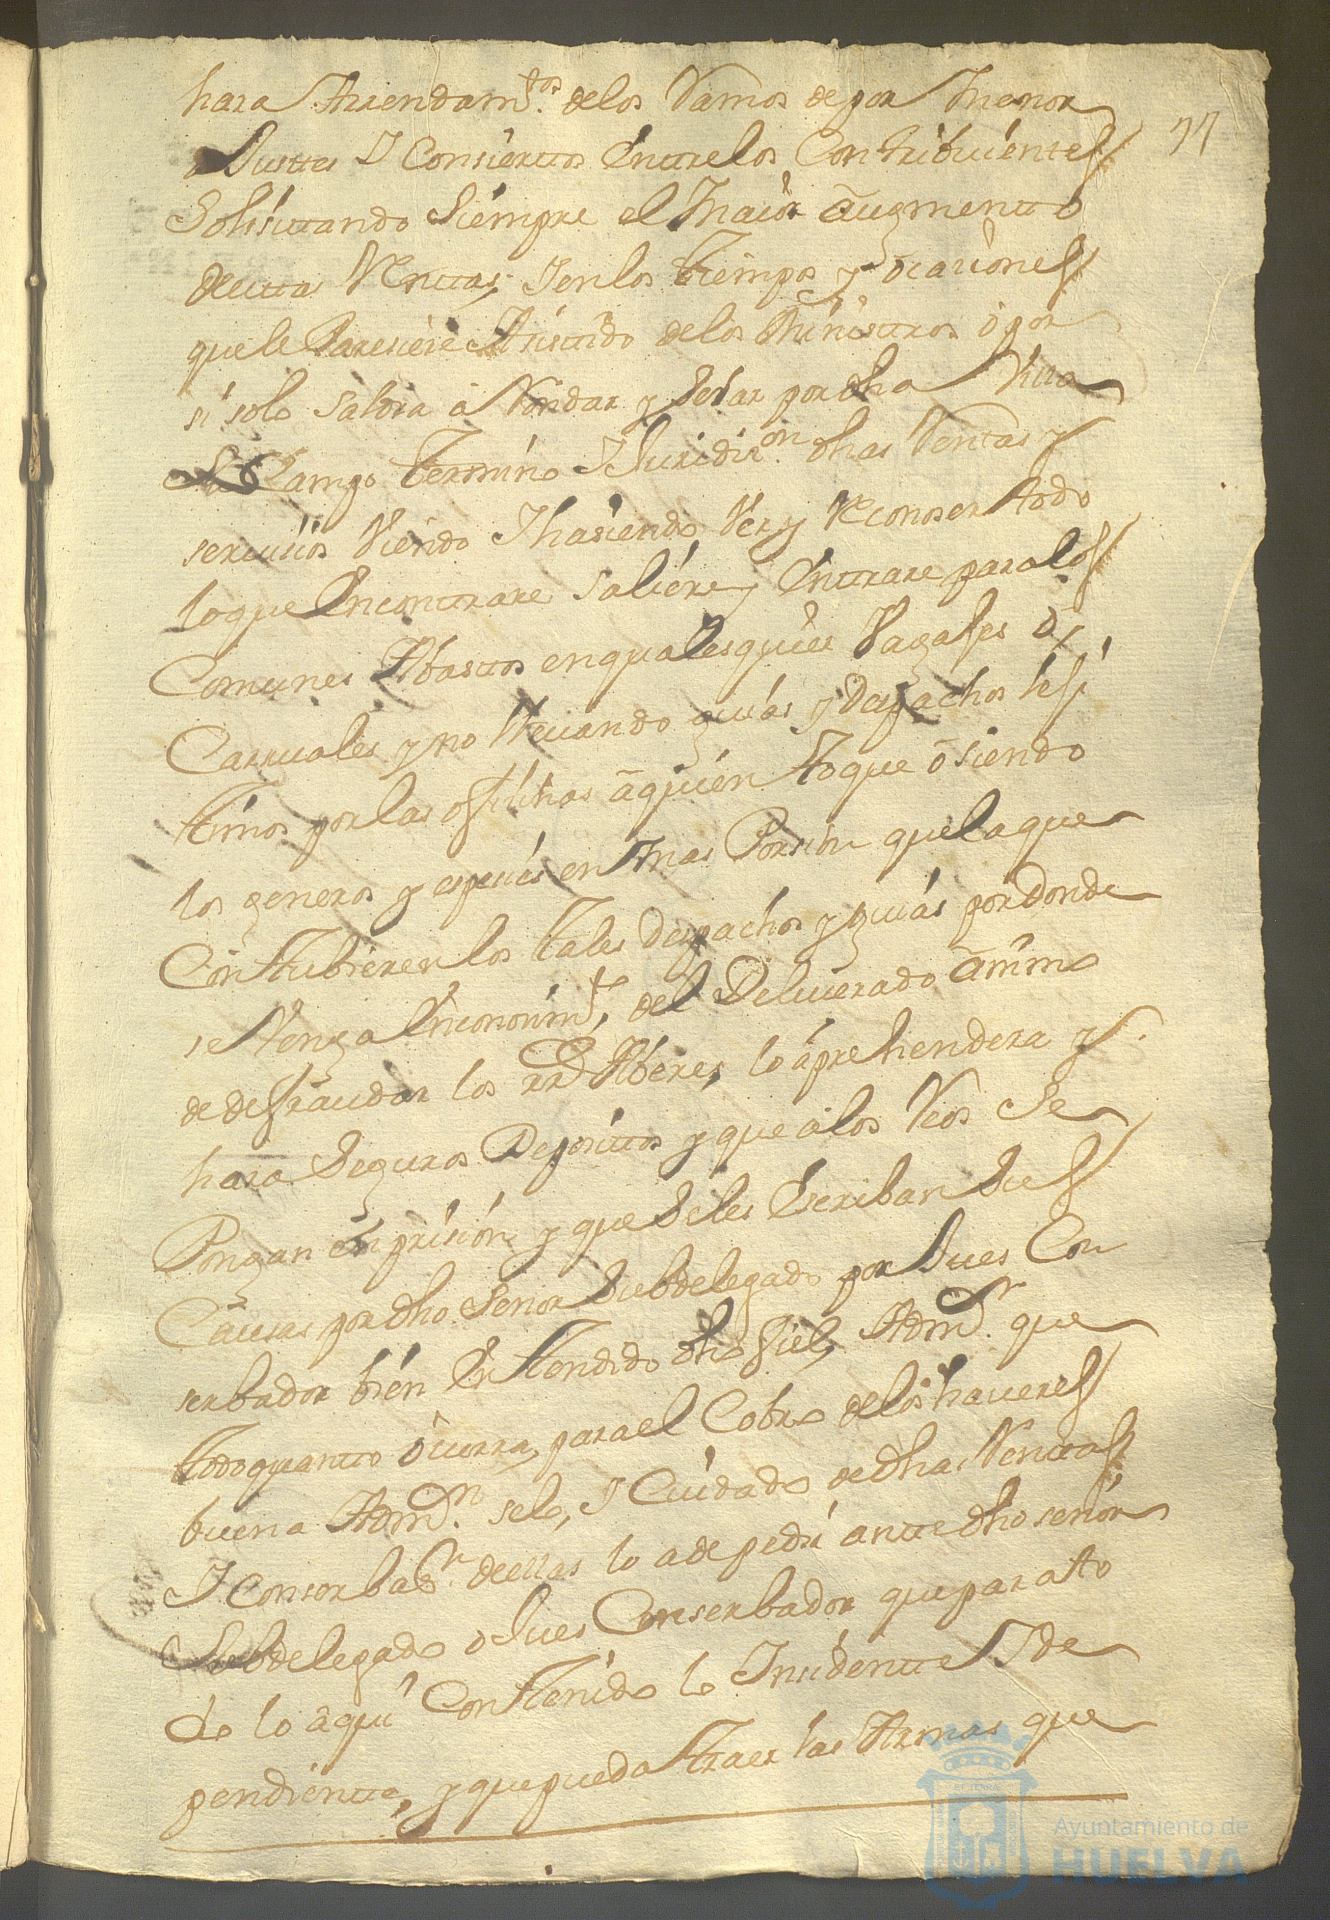 hara Arrendam.tos delos Ramos de por menor
aJustes I Consiertos Entrelos Contribuientes 77
Solisitando Siempre el Maior augmento
destta Renttas, Ienlos tiempos y ocasiones
que le Paresiere Asistido delos Ministros o por
si solo saldra a Rondar y Selar por dha Villa
su Campo termino I Juridi.on dhas Rentas y
serVisios Viendo I hasiendo Ver y Reconoser todo
lo que Encontrare saliere y Entrare para los
Comunes Abastos en quales quier Vagajes o
Carruales y no llevando guias y Despachos lexi
timos por las ofisinas a quien toque o siendo
los generos y espesies en mas Porsion que la que
Contubieren los tales Despachos y guias por donde
se Venga En conosim.to del Deliverado animo
de defraudar los rr.s Aberes, lo aprehendera y
hara Seguros Depositos y que a los Reos Se
Pongan en prision y que Seles Escriban Sus
Causas por dho Señor Subdelegado por Jues Con
serbador bien Entendido dho fiel Adm.r que
todo quantto ocurra para el Cobro delos haveres
buena Adm.n selo, I Cuidado de dhas Renttas
I conserbas.n de ellas lo a de pedir antte dho señor
Subdelegado o Jues Conserbador que para to
do lo aqui Contenido lo Insidentte I de
pendientte, y que pueda traer las Armas que
Ayuntamiento de
HUELVA